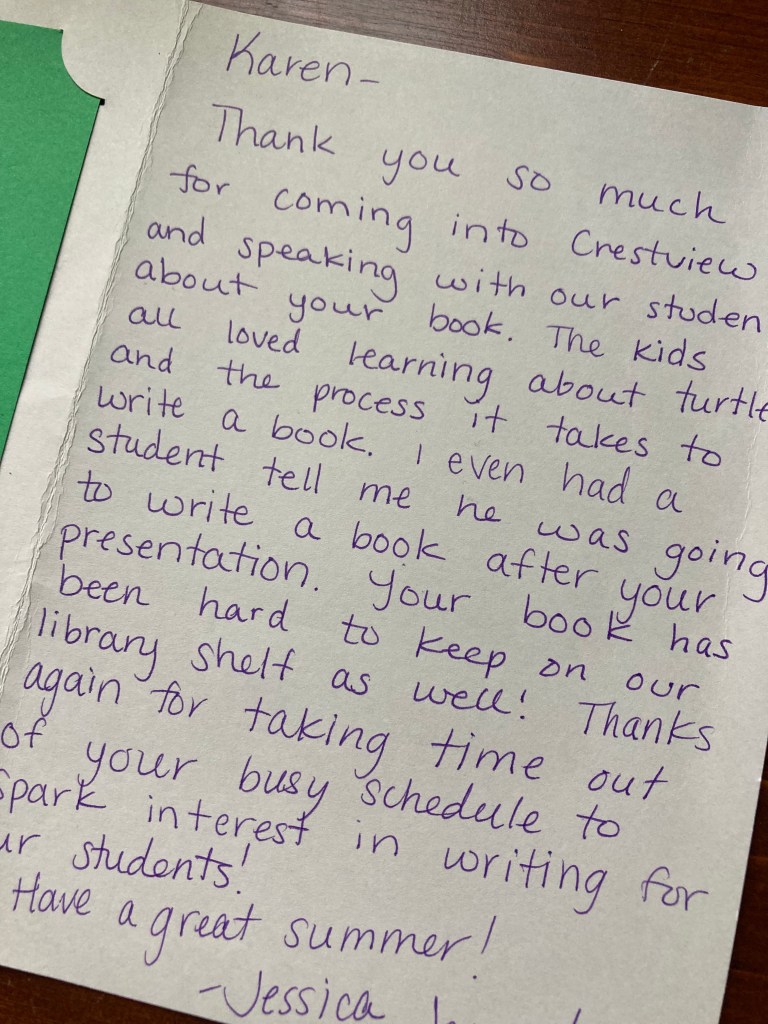 Karen-
Thank you so much
for coming into Crestview
and speaking with our studen
about your book. The kids
all loved learning about turtle
and the process it takes to
write a book. I even had a
student tell me he was going
to write a book after your
presentation. Your book has
been hard to keep on our
library shelf as well! Thanks
again for taking time out
of your busy schedule to
spark interest in writing for
ur students!
Have a great summer!
-Jessica